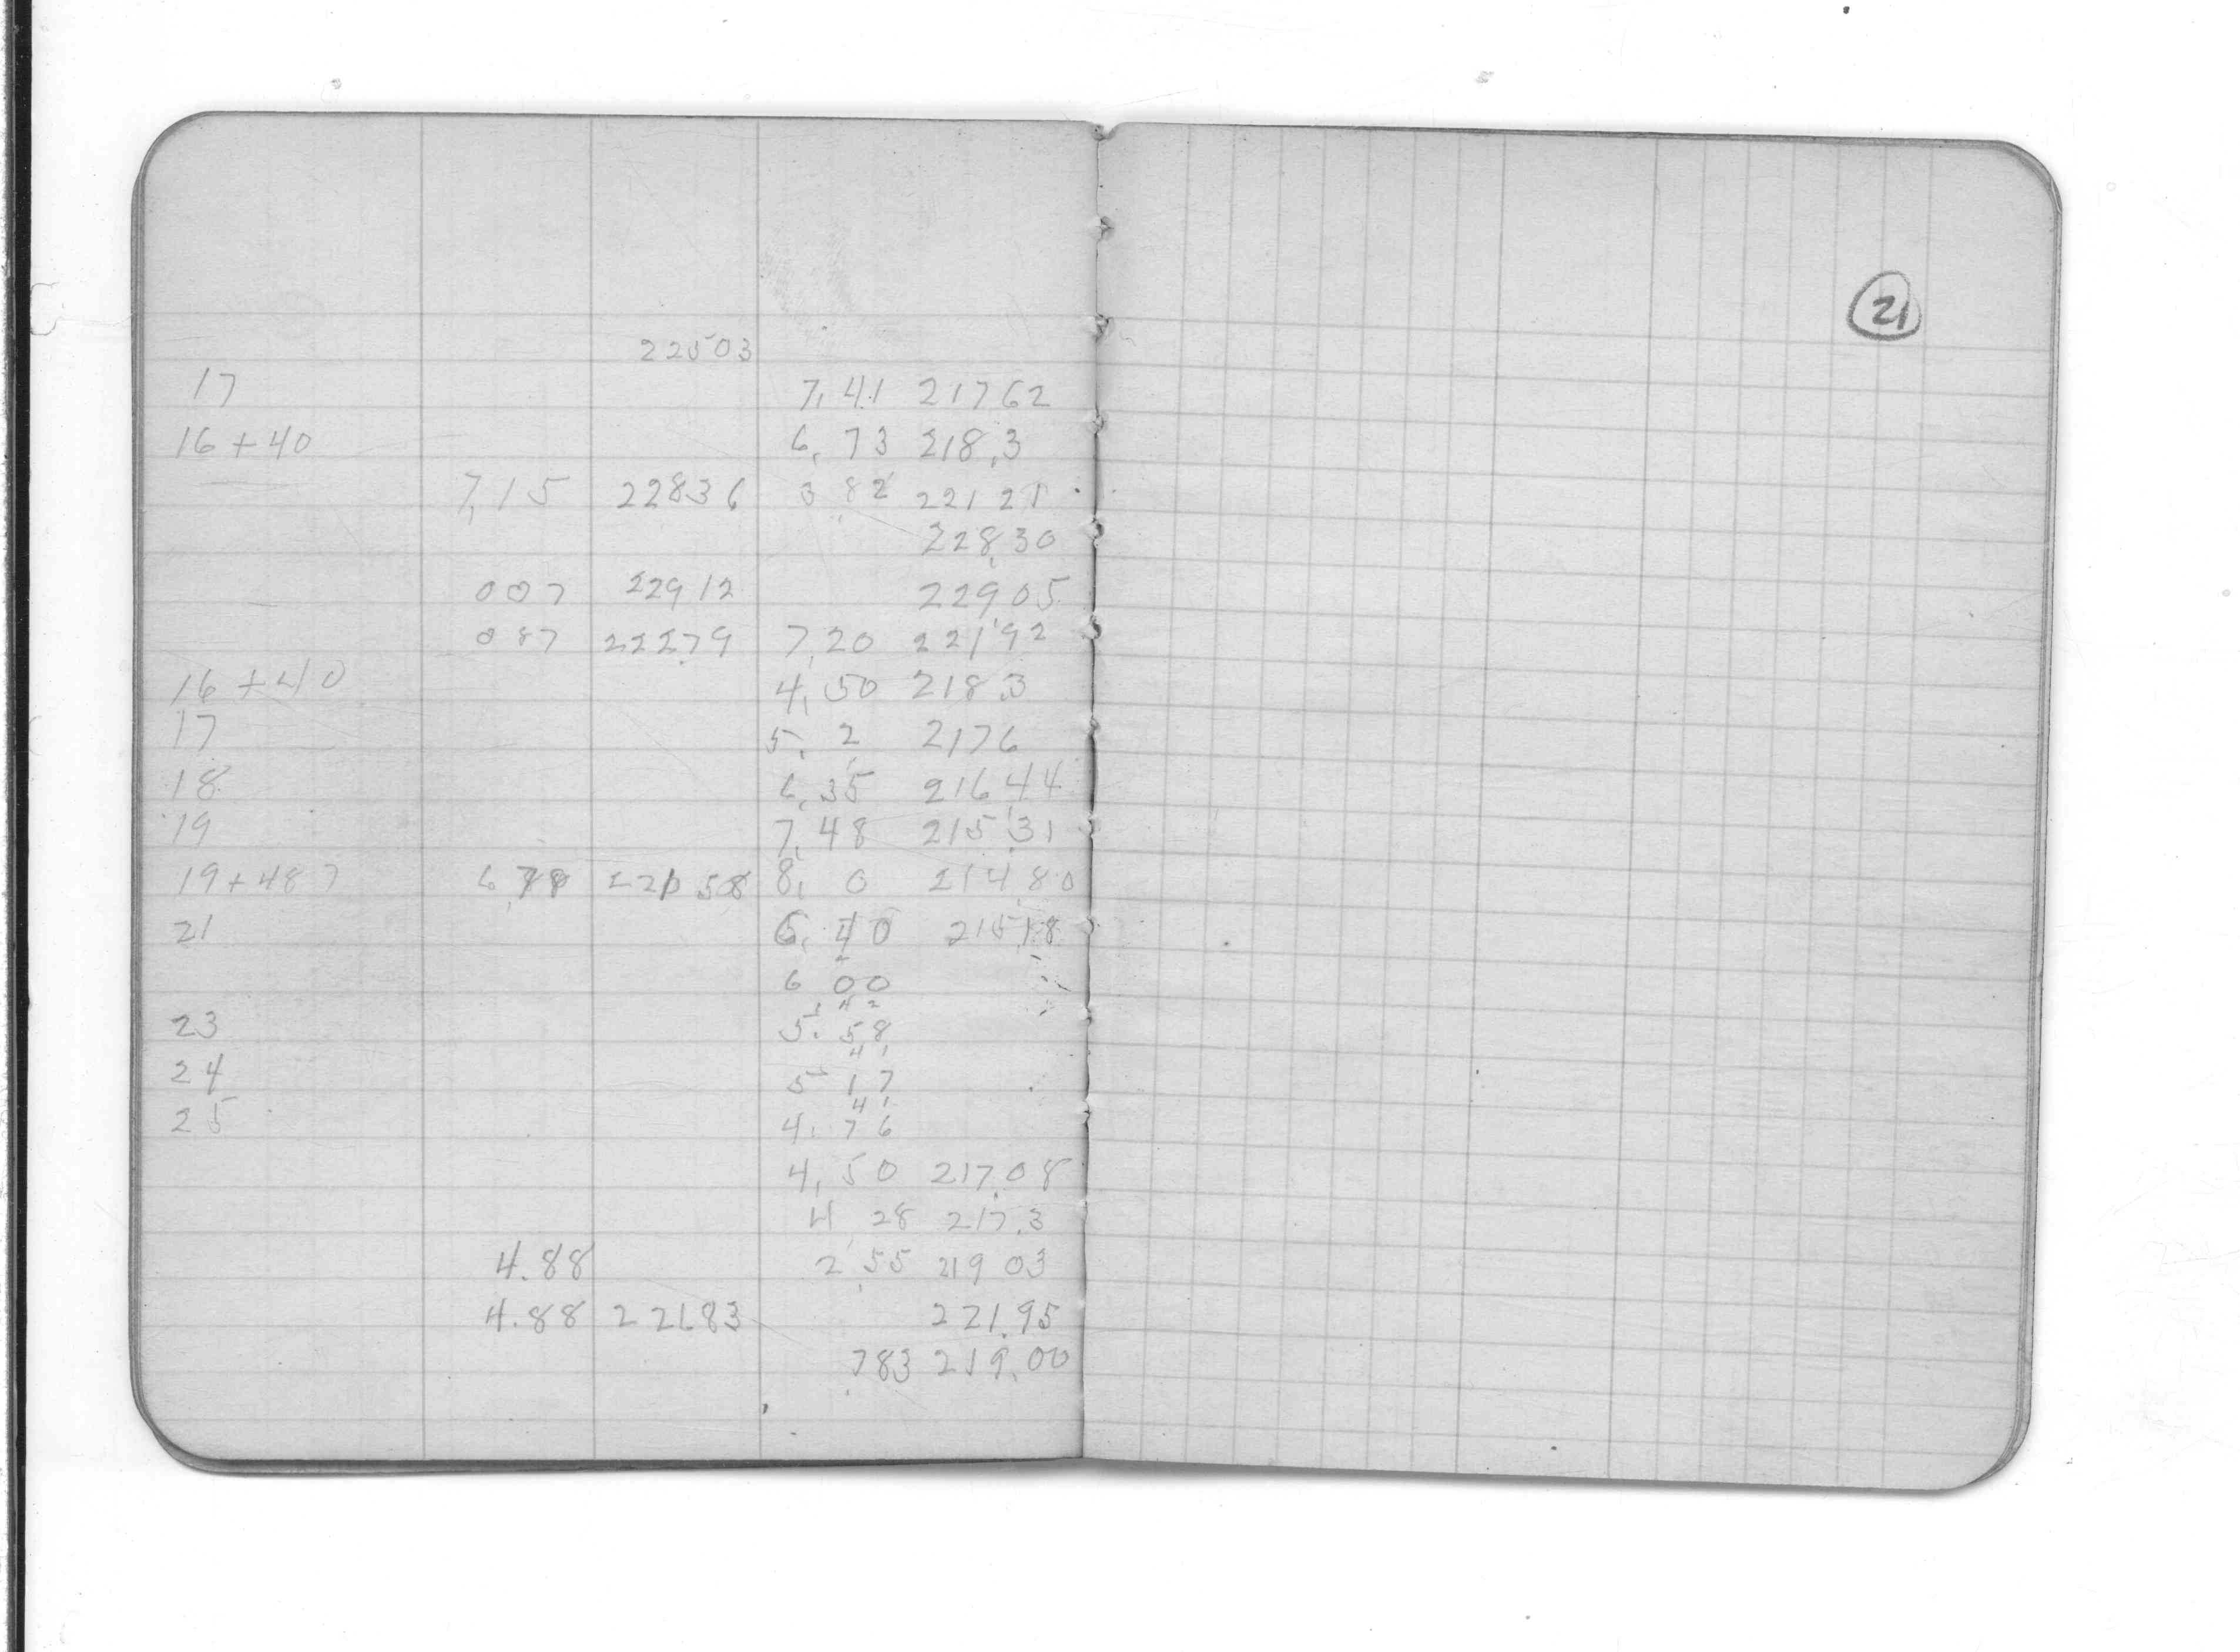 22503
17 7,41 21762
16+40 6,73 218,3
7,15 22836 3 82 221 21
228,30
007 22912 22905
087 22279 7,20 22192
16+40 4,50 218 3
17 5. 2 2176
18 6,35 21644
19 7,48 21531
19+487 8, 0 214,80
21 6, 40 21518
6 00
42
23 5. 58
41
24 5 17
41
25 4. 76
4,50 217.08
4 28 217.3
4.88 2,55 219 03
4.88 22683 221.95
783 219.00
21